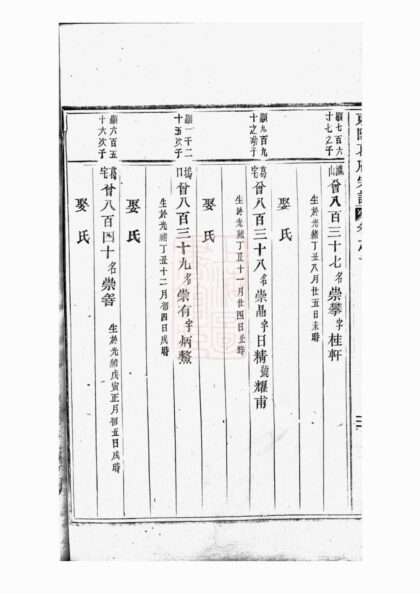 顯七百六
十七之子
瀛山 曾八百三十七名崇攀字桂軒
生於光緒丁丑八月廿五日未時
娶氏
顯九百九
十之幼子
葛宅 曾八百三十八名崇晶字日精號耀甫
生於光緒丁丑十一月廿四日丑時
娶氏
顯一千二
十五次子
塢口 曾八百三十九名崇有字炳鰲
生於光緒丁丑十二月初四日戌時
娶氏
顯六百五
十六次子
葛宅 曾八百四十名崇善
生於光緒戊寅正月初五日戌時
娶氏